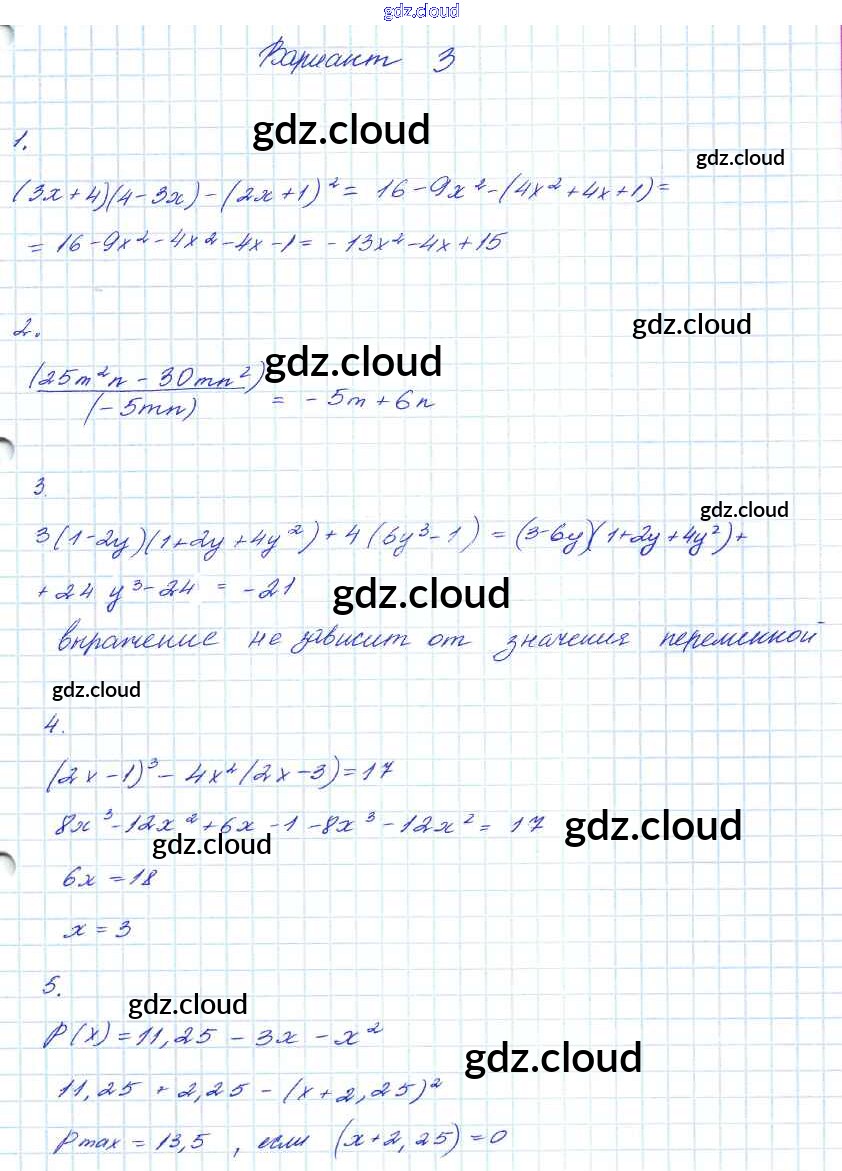 gdz.cloud
Вариант 3
gdz.cloud
1.
gdz.cloud
(3x+4)(4-3x)-(2x+1)² = 16-9x²-(4x²+4x+1)=
= 16-9x²-4x²-4x-1= -13x²-4x+15
2.
gdz.cloud
gdz.cloud
(25m²n - 30mn²)
(-5mn)
= -5m+6n
3.
gdz.cloud
3(1-2y)(1+2y+4y²)+4(6y³-1) = (3-6y)(1+2y+4y²)+
+24y³-24 = -21
gdz.cloud
выражение не зависит от значения переменной
gdz.cloud
4.
(2x-1)³-4x²(2x-3)=17
8x³-12x²+6x-1-8x³-12x²= 17
gdz.cloud
gdz.cloud
6x=18
x=3
5.
gdz.cloud
P(x)=11,25-3x-x²
gdz.cloud
11,25+2,25-(x+2,25)²
Pmax = 13,5, если (x+2,25)=0